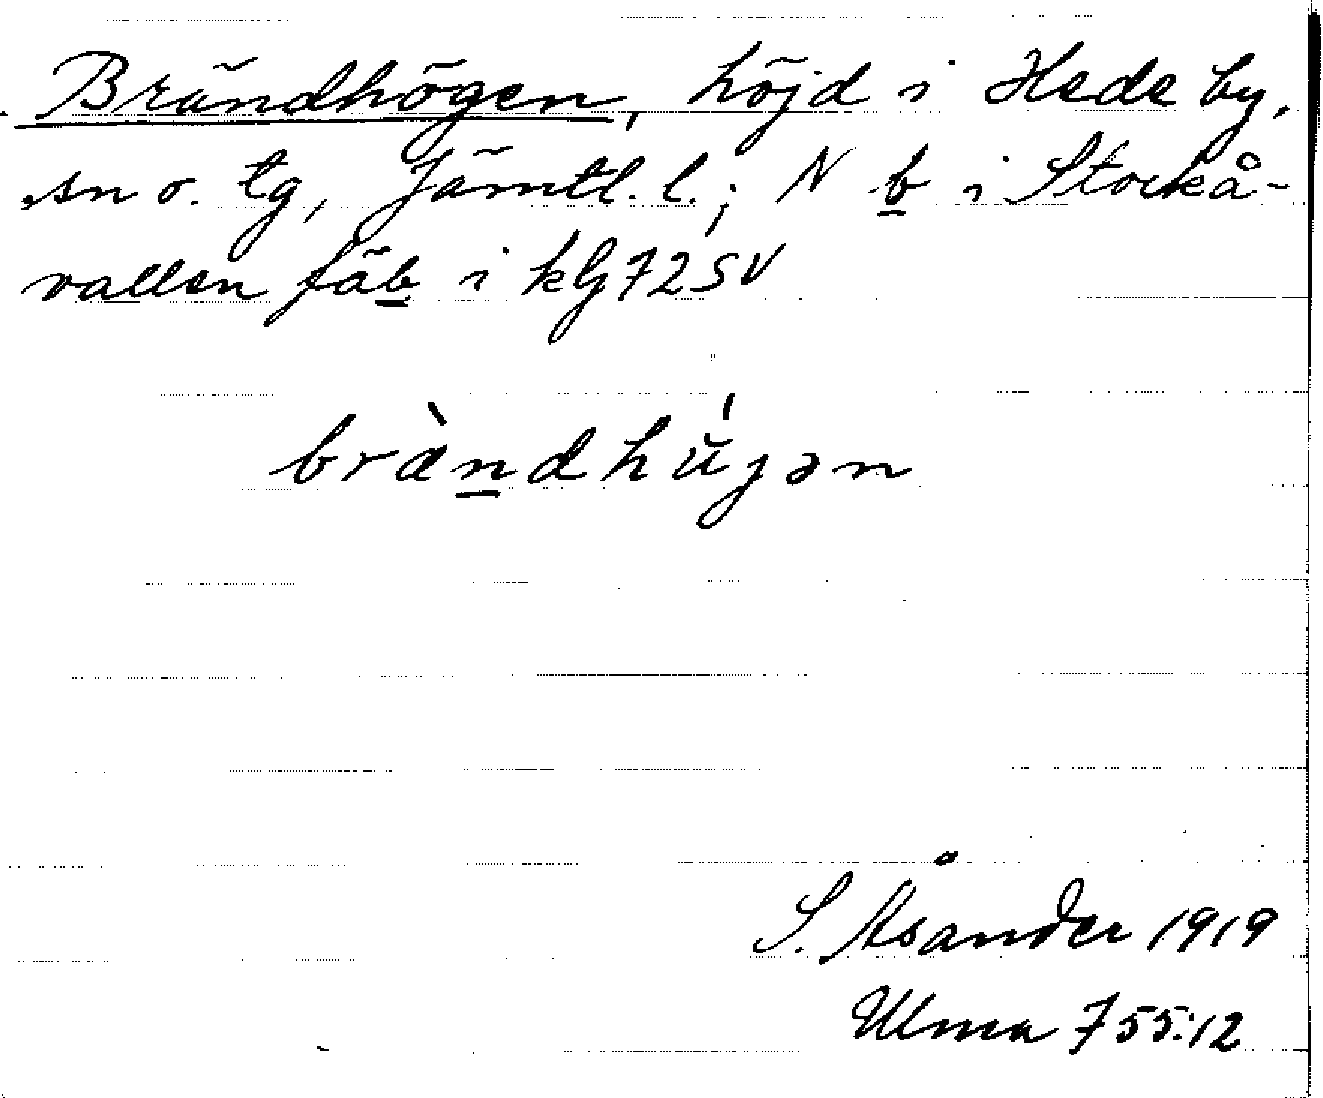 Brändhögen, höjd i Hede by,
sn o. tg, Jämtl. l.; N b i Stockå-
vallen fäb i kbl 72 SV
brændhújən
S. Åsander 1919
Ulma 755:12